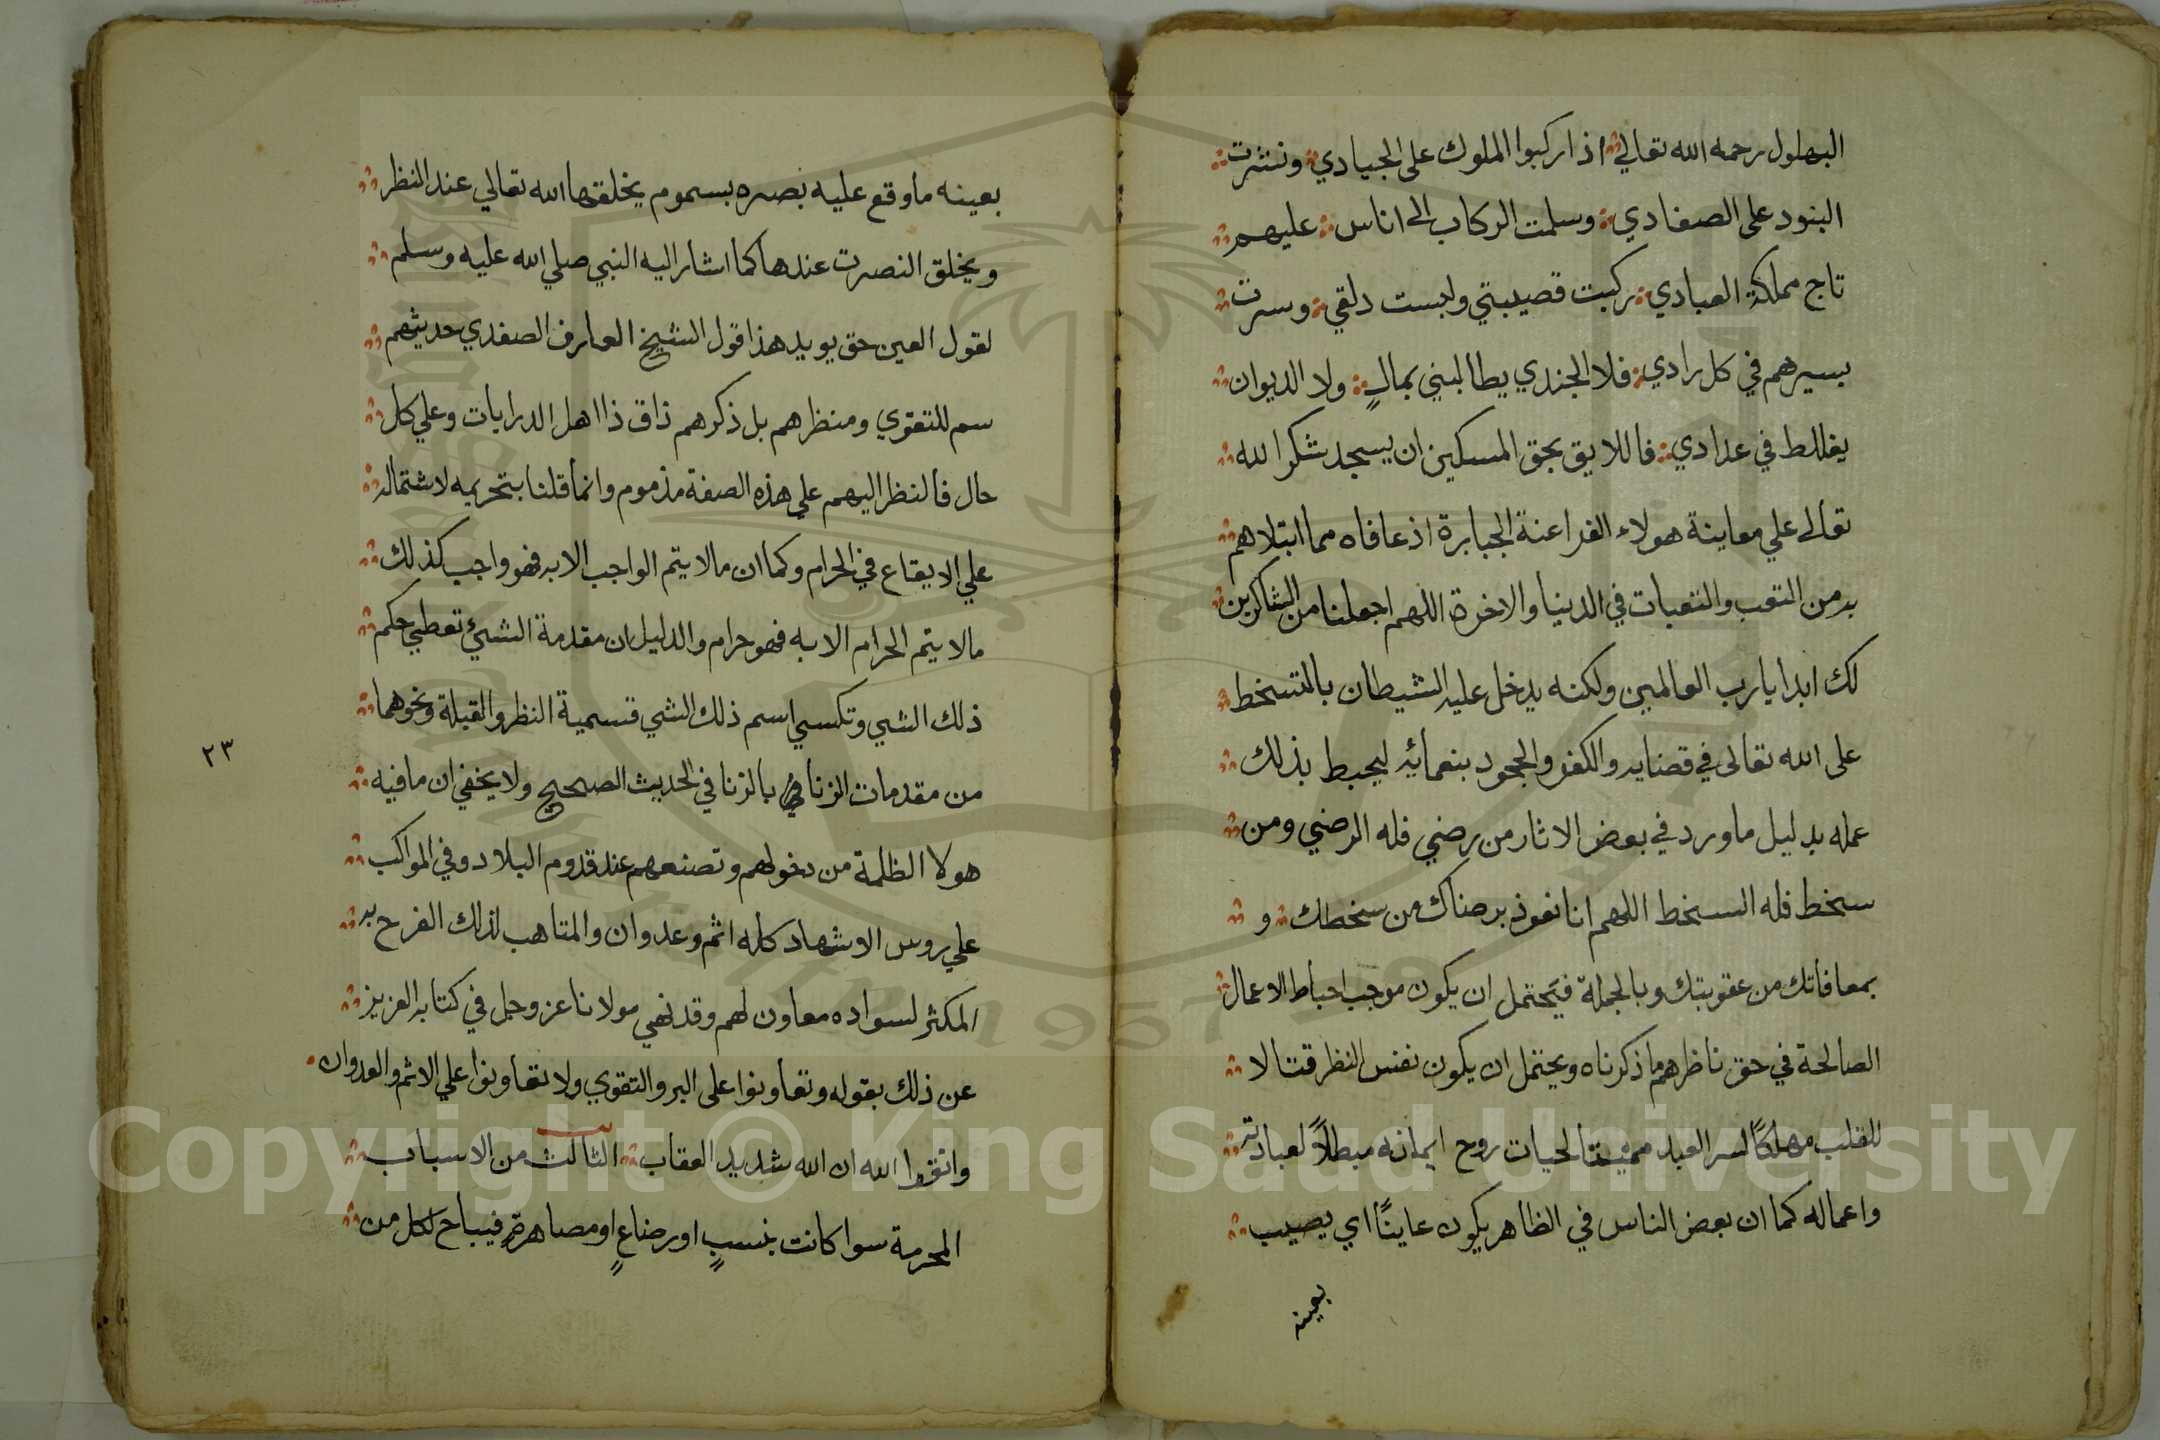 البهلول رحمه الله تعالي اذا ركبوا الملوك على الجيادي ونشرت
البنود على الصفادي وسلمت الركاب الى اناس عليهم
تاج مملكة العبادي ركبت قصيبتي ولبست دلقي وسرت
بسيرهم في كل رادي فلا الجندي يطالبني بمالٍ ولا الديوان
يغلط في عدادي فاللايق بحق المسكين ان يسجد شكرا لله
تعالى علي معاينة هولاء الفراعنة الجبابرة اذ عافاه مما ابتلاهم
به من التعب والتعبات في الدنيا والاخرة اللهم اجعلنا من الشاكرين
لك ابدا يارب العالمين ولكنه يدخل عليه الشيطان بالتسخط
على الله تعالى في قضايه والكفر والجحود بنعمائه ليحبط بذلك
عمله بدليل ما ورد في بعض الاثار من رضي فله الرضي ومن
سخط فله السخط اللهم انا نعوذ برضاك من سخطك و
بمعافاتك من عقوبتك وبالجملة فيحتمل ان يكون موجب احباط الاعمال
الصالحة في حق ناظرهم ما ذكرناه ويحتمل ان يكون نفس النظر قتالا
للقلب مهلكًا لسر العبد مميتا لحيات روح ايمانه مبطلاً لعبادته
واعماله كما ان بعض الناس في الظاهر يكون عاينًا اي يصيب
بعينه
بعينه ما وقع عليه بصره بسموم يخلقها الله تعالي عند النظر
ويخلق النصرت عندها كما اشار اليه النبي صلي الله عليه وسلم
لقول العين حق يويد هذا قول الشيخ العارف الصفدي حديثهم
سم للتقوي ومنظرهم بل ذكرهم ذاق ذا اهل الدرايات وعلي كل
حال فالنظر اليهم علي هذه الصفة مذموم وانما قلنا بتحريمه لاشتماله
علي الايقاع في الحرام وكما ان مالا يتم الواجب الا به فهو واجب كذلك
مالا يتم الحرام الا به فهو حرام والدليل ان مقدمة الشيء تعطي حكم
ذلك الشي وتكسي اسم ذلك الشي قسمية النظر والقبلة ونحوهما
من مقدمات الزنا بالزنا في الحديث الصحيح ولا يخفي ان ما فيه
هولا الظلمة من دخولهم وتصنعهم عند قدوم البلاد وفي المواكب
علي روس الاشهاد كله اثم وعدوان والمتاهب لذلك الفرح به
المكثر لسواده معاون لهم وقد نهي مولانا عز وجل في كتابه العزيز
عن ذلك بقوله وتعاونوا على البر والتقوي ولا تعاونوا علي الاثم والعدوان
واتقوا الله ان الله شديد العقاب الثالث من الاسباب
المحرمة سوا كانت بنسبٍ او رضاعٍ او مصاهرةٍ فيباح لكل من
٢٣
Copyright © King Saud University
1957